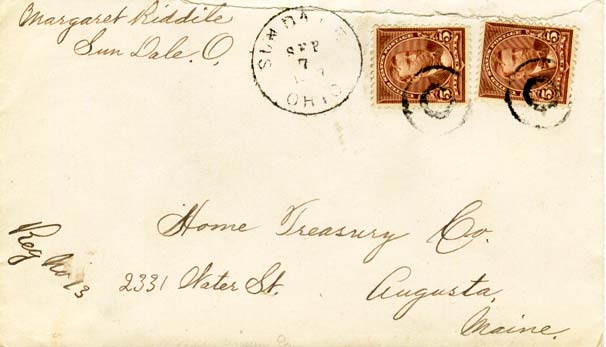 Margaret Riddile
Sun Dale. O,
SUNDALE
SEP
7
OHIO
5 5
Home Treasury Co.
2331 Water St. Augusta,
Maine.
Reg No 13